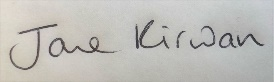 Jane Kirwan